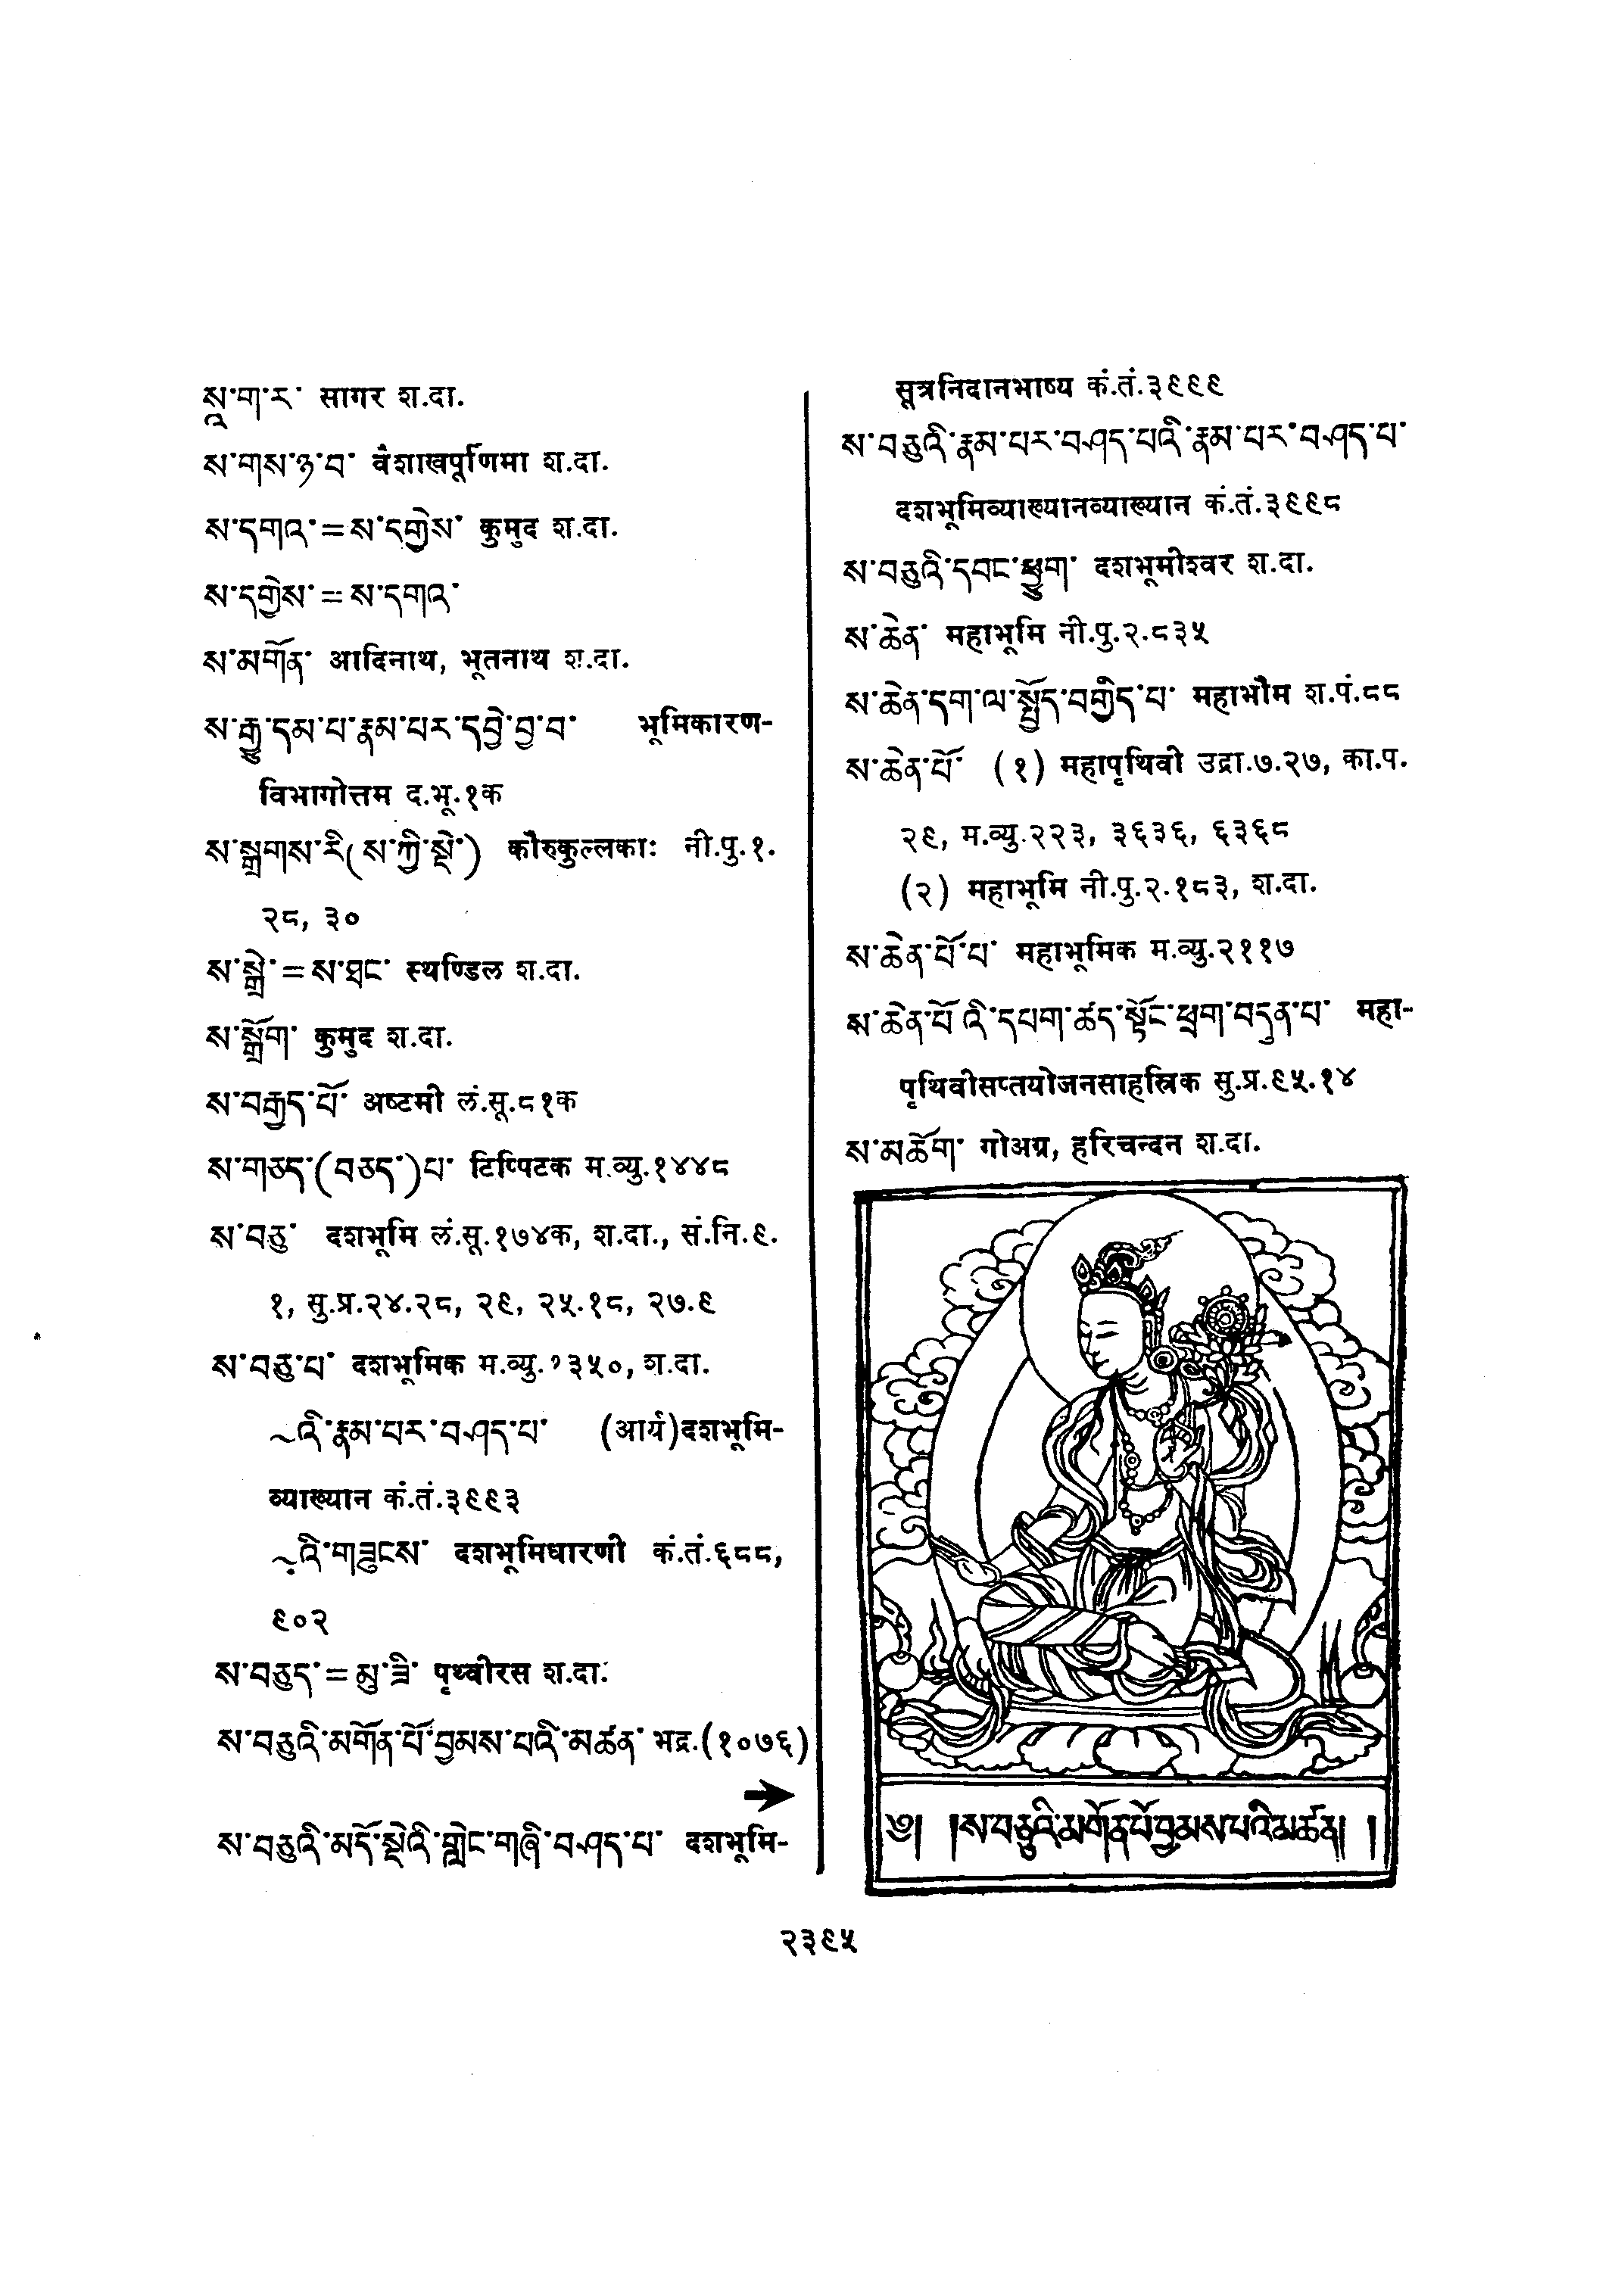 སཱ་ག་ར་ सागर श.दा.
ས་གས་ཉ་བ་ वैशाखपूर्णिमा श.दा.
ས་དགའ་=ས་དགྱེས་ कुमुद श.दा.
ས་དགྱེས་=ས་དགའ་
ས་མགོན་ आदिनाथ, भूतनाथ श.दा.
ས་རྒྱུ་དམ་པ་རྣམ་པར་དབྱེ་བྱ་བ་ भूमिकारण-
विभागोत्तम द.भू.१क
ས་སྒྲགས་རི(ས་ཀྱི་སྡེ་) कौरुकुल्लकाः नी.पु.१.
२८, ३०
ས་སྒྲེ་=ས་ཐང་ स्थण्डिल श.दा.
ས་སྒྲོག་ कुमुद श.दा.
ས་བརྒྱད་པོ་ अष्टमी लं.सू.८१क
ས་གཅད་(བཅད་)པ་ टिप्पिटक म.व्यु.१४४८
ས་བཅུ་ दशभूमि लं.सू.१७४क, श.दा., सं.नि.९.
१, सु.प्र.२४.२८, २९, २५.१८, २७.९
ས་བཅུ་པ་ दशभूमिक म.व्यु.१३५०, श.दा.
~འི་རྣམ་པར་བཤད་པ་ (आर्य)दशभूमि-
व्याख्यान कं.तं.३९९३
~འི་གཟུངས་ दशभूमिधारणी कं.तं.६८८,
९०२
ས་བཅུད་=མུ་ཟི་ पृथ्वीरस श.दा.
ས་བཅུའི་མགོན་པོ་བྱམས་པའི་མཚན་ भद्र.(१०७६)
➔
ས་བཅུའི་མདོ་སྡེའི་གླེང་གཞི་བཤད་པ་ दशभूमि-
सूत्रनिदानभाष्य कं.तं.३९९९
ས་བཅུའི་རྣམ་པར་བཤད་པའི་རྣམ་པར་བཤད་པ་
दशभूमिव्याख्यानव्याख्यान कं.तं.३९९८
ས་བཅུའི་དབང་ཕྱུག་ दशभूमीश्वर श.दा.
ས་ཆེན་ महाभूमि नी.पु.२.८३५
ས་ཆེན་དག་ལ་སྤྱོད་བགྱིད་པ་ महाभौम श.पं.८८
ས་ཆེན་པོ་ (१) महापृथिवी उद्रा.७.२७, का.प.
२९, म.व्यु.२२३, ३६३६, ६३६८
(२) महाभूमि नी.पु.२.१८३, श.दा.
ས་ཆེན་པོ་པ་ महाभूमिक म.व्यु.२११७
ས་ཆེན་པོ་འི་དཔག་ཚད་སྟོང་ཕྲག་བདུན་པ་ महा-
पृथिवीसप्तयोजनसाहस्रिक सु.प्र.९५.१४
ས་མཆོག་ गोअग्र, हरिचन्दन श.दा.
༄། །ས་བཅུའི་མགོན་པོ་བྱམས་པའི་མཚན། །
२३९५